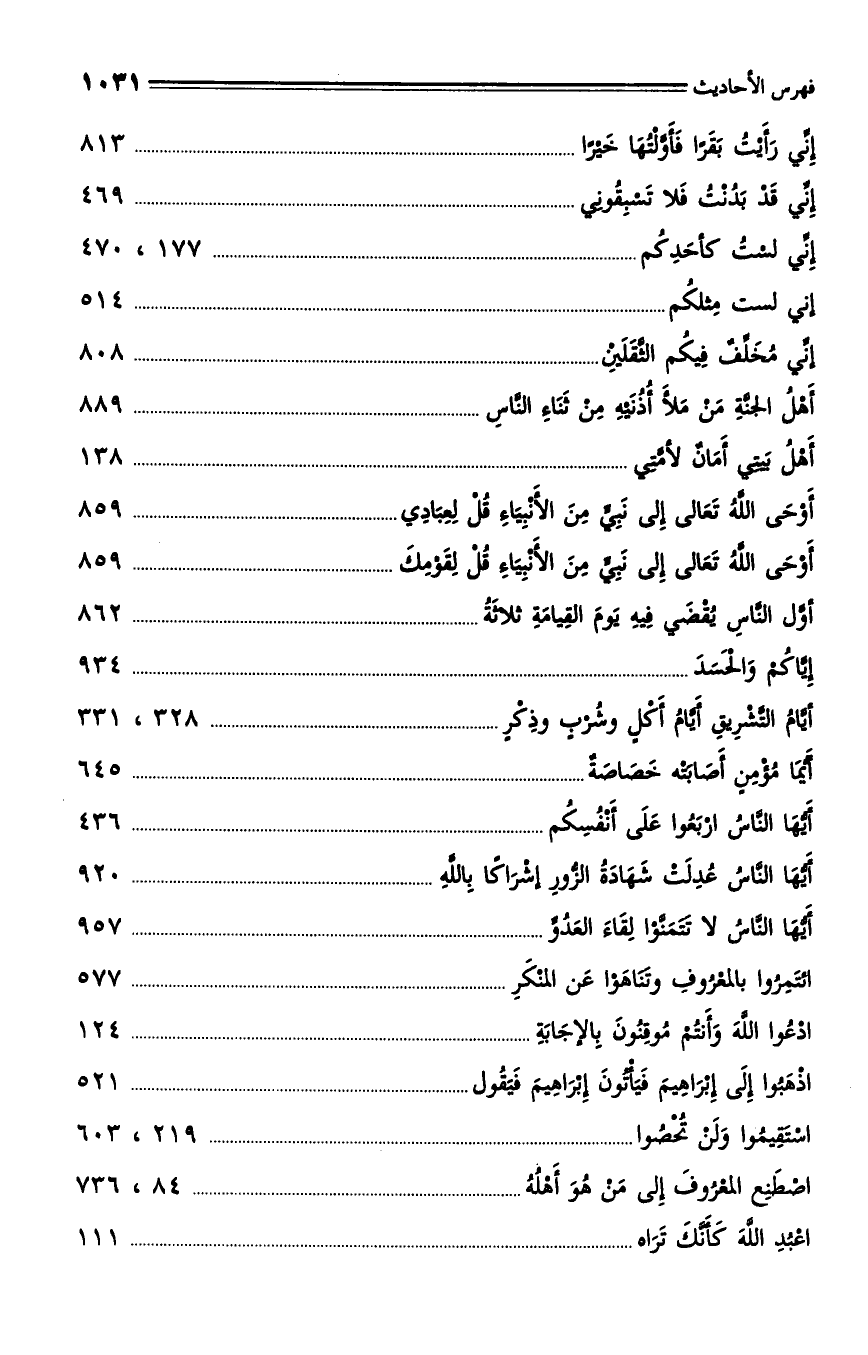 فهرس الأحاديث ١٠٣١
إِنِّي رَأَيْتُ بَقَرًا فَأَوَّلْتُهَا خَيْرًا ٨١٣
إِنِّي قَدْ بَدُنْتُ فَلا تَسْبِقُونِي ٤٦٩
إِنِّي لسْتُ كأحَدِكُم ١٧٧ ، ٤٧٠
إني لست مِثلكُم ٥١٤
إِنَّي مُخَلِّفٌ فِيكُم الثَّقَلَيْنِ ٨٠٨
أَهْلُ الجنَّةِ مَنْ مَلأَ أُذُنَيْهِ مِنْ ثَنَاءِ النَّاسِ ٨٨٩
أَهْلُ بَيتِي أَمَانٌ لأمَّتِي ١٣٨
أَوْحَى اللَّهُ تَعَالى إِلى نَبِيٍّ مِنَ الأَنْبِيَاءِ قُلْ لِعِبَادِي ٨٥٩
أَوْحَى اللَّهُ تَعَالى إِلى نَبِيٍّ مِنَ الأَنْبِيَاءِ قُلْ لِقَوْمِكَ ٨٥٩
أوَّل النَّاسِ يُقْضَي فِيهِ يَومَ القِيامَةِ ثلاثَةُ ٨٦٢
إِيَّاكُمْ وَالْحَسَدَ ٩٣٤
أيَّامُ التَّشْرِيقِ أَيَّامُ أَكْلٍ وشُرْبٍ وذِكْرٍ ٣٢٨ ، ٣٣١
أَيُّمَا مُؤْمِنٍ أَصَابَتْه خَصَاصَةٌ ٦٤٥
أَيُّهَا النَّاسُ ارْبَعُوا عَلَى أَنْفُسِكُم ٤٣٦
أَيُّهَا النَّاسُ عُدِلَتْ شَهَادَةُ الزُّورِ إشْرَاكًا بِاللَّهِ ٩٢٠
أَيُّهَا النَّاسُ لا تَتَمَنَّوْا لِقَاءَ العَدُوِّ ٩٥٧
ائتَمِرُوا بالمعْرُوفِ وتَنَاهَوْا عَن المنْكَرِ ٥٧٧
ادْعُوا اللَّهَ وَأَنتُمْ مُوقِنُونَ بِالإجَابَةِ ١٢٤
اذْهَبُوا إِلَى إِبْرَاهِيمَ فَيَأْتُونَ إِبْرَاهِيمَ فَيَقُول ٥٢١
اسْتَقِيمُوا وَلَنْ تُحْصُوا ٢١٩ ، ٦٠٣
اصْطَنِع المعْرُوفَ إِلى مَنْ هُوَ أَهْلُهُ ٨٤ ، ٧٣٦
اعْبُدِ اللَّهَ كَأَنَّكَ تَرَاه ١١١